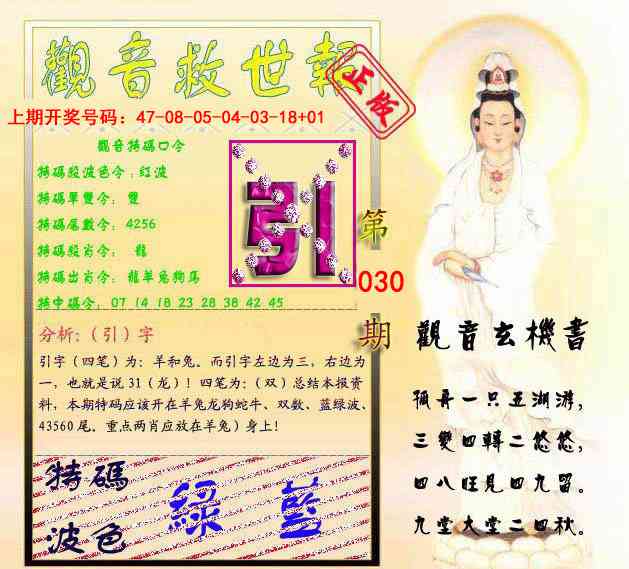 觀音救世報
正版
上期开奖号码：47-08-05-04-03-18+01
觀音特碼口令
特碼段波色令：紅波
特碼單雙令： 雙
特碼尾數令： 4256
特碼段肖令： 龍
特碼出肖令： 龍羊兔狗馬
特中碼令： 07 14 18 23 28 38 42 45
引
第
030
期
分析:（引）字
引字（四笔）为：羊和兔。而引字左边为三，右边为
一，也就是说 31（龙）！四笔为：（双）总结本报资
料，本期特码应该开在羊兔龙狗蛇牛、双数、蓝绿波、
43560 尾。重点两肖应放在羊兔）身上！
特碼
波色
綠 藍
觀音玄機書
孤舟一只五湖游，
三變四轉二悠悠，
四八旺見四九留。
九堂大堂二四秋。